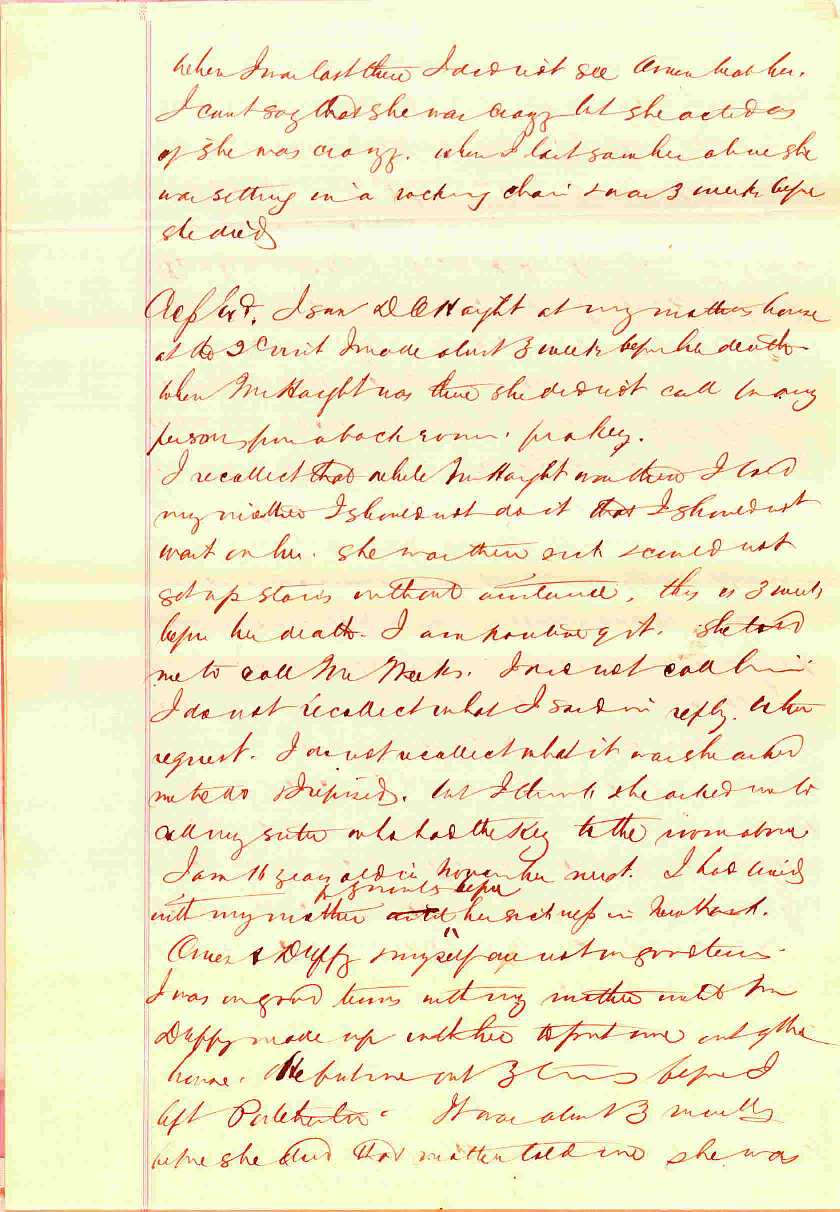 when I was last there I did not see Owen beat her.
I cant say that she was crazy but she acted as
if she was crazy. when I last saw her alive she
was setting in a rocking chair & was 3 weeks before
she died
I saw D C Haight at my mothers house
at the 2d visit I made about 3 weeks before her death
when Mr Haight was there she did not call for any
person from a back room. for a key.
I recollect that while Mr Haight was there I told
my mother I should not do it that I should not
wait on her. she was then sick & could not
get up stairs without assistance, this is 3 weeks
before her death. I am positive of it. she told
me to call Mr Weeks. I did not call him
I do not recollect what I said in reply to her
request. I do not recollect what it was she asked
me to do & I refused. but I think she asked me to
call my sister who had the key to the room above
I am 16 years old in November next. I had lived
with my mother until her sickness in New York.
for months before
Owen & Duffy & myself are not on good terms.
I was on good terms with my mother until
Duffy made up with her to put me out of the
house. He put me out 3 times before I
left Port It was about 3 months
before she died that mother told me she was